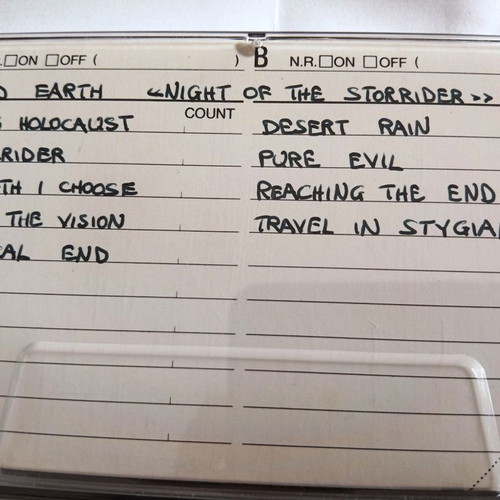 .□ON □OFF ( ) B N.R.□ON □OFF (
D EARTH «NIGHT OF THE STORRIDER»
COUNT
S HOLOCAUST DESERT RAIN
RIDER PURE EVIL
TH I CHOOSE REACHING THE END
THE VISION TRAVEL IN STYGIA
AL END